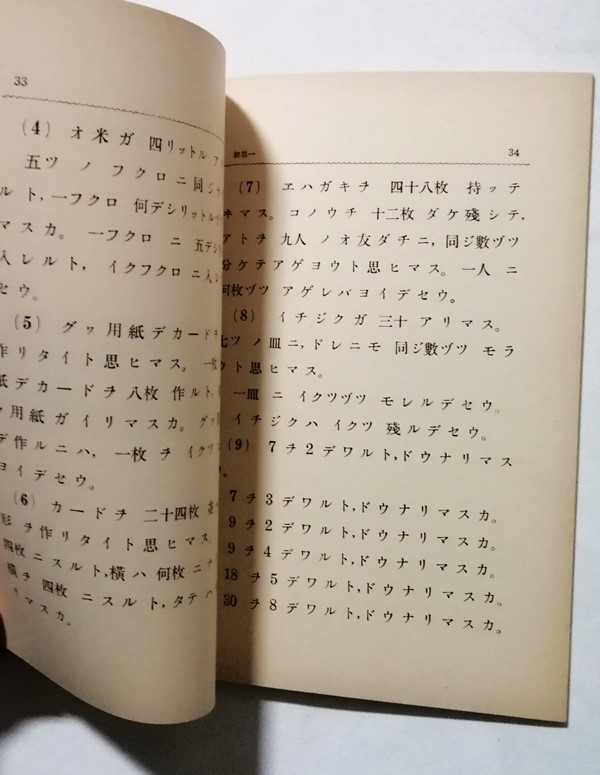 33
(4) オ米ガ 四リットル
五ツ ノ フクロニ 同ジ
ルト,一フクロ 何デシリットル
マスカ。 一フクロ ニ 五デシ
入レルト, イクフクロニ入レ
セウ。
(5) グヮ用紙デカードヲ
作リタイト思ヒマス。 一枚
紙デカードヲ 八枚 作ルト,
用紙ガイリマスカ。
デ作ルニハ, 一枚 ヲ イク
ヨイデセウ。
(6) カードヲ 二十四枚
形 ヲ 作リタイト思ヒマス。
四枚ニスルト,横ハ 何枚ニナ
横ヲ 四枚 ニスルト,タテハ
リマスカ。
初算一 34
(7) ヱハガキヲ 四十八枚 持ッテ
ヰマス。 コノウチ 十二枚 ダケ殘シテ,
アトヲ 九人 ノオ友ダチニ, 同ジ數ヅツ
分ケテアゲヨウト思ヒマス。 一人 ニ
何枚ヅツ アゲレバヨイデセウ。
(8) イチジクガ 三十 アリマス。
七ツ ノ皿 ニ,ドレニモ 同ジ數ヅツ モラ
ウト思ヒマス。
一皿 ニ イクツヅツ モレルデセウ。
イチジクハ イクツ 殘ルデセウ。
(9) 7ヲ2デワルト,ドウナリマス
。
7ヲ3デワルト,ドウナリマスカ。
9ヲ2デワルト,ドウナリマスカ。
9ヲ4デワルト,ドウナリマスカ。
18ヲ5デワルト,ドウナリマスカ。
30ヲ8デワルト,ドウナリマスカ。